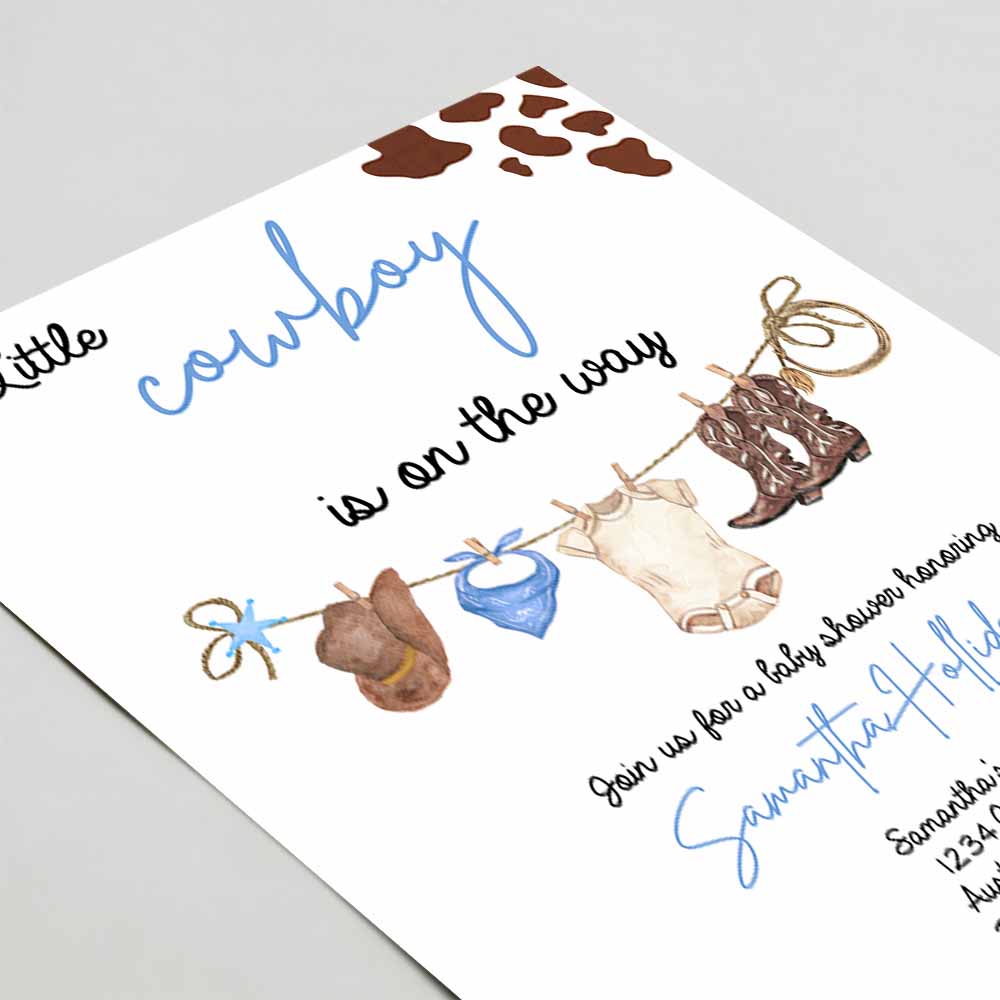 Little
cowboy
is on the way
Join us for a baby shower honoring
Samantha
Samantha's
1234